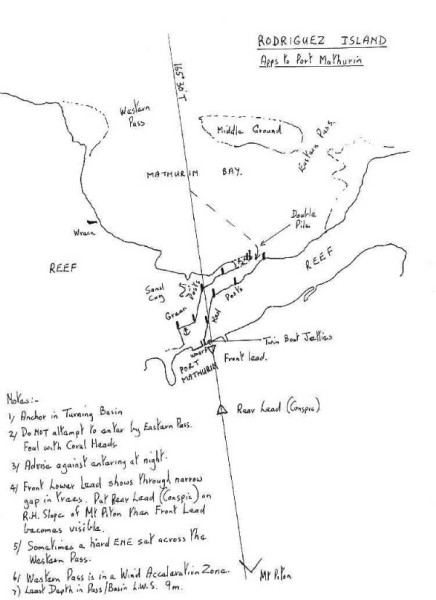 RODRIGUEZ ISLAND
Apps to Port Mathurin
165° 30'T
Western
Pass
Middle Ground
Eastern Pass.
MATHURIN BAY.
Double
Pile
Wreck
REEF
REEF
Sand
Cay
Posts
Green
Posts
Red
Twin Boat Jetties
Wharf
Front lead.
PORT
MATHURIN
Rear Lead (Conspic)
Notes:-
1/ Anchor in Turning Basin
2/ Do NOT attempt to enter by Eastern Pass.
Foul with Coral Heads
3/ Advise against entering at night.
4/ Front Lower Lead shows through narrow
gap in trees. Put Rear Lead (Conspic) on
R.H. Slope of Mt Piton then Front Lead
becomes visible.
5/ Sometimes a hard ENE set across the
Western Pass.
6/ Western Pass is in a Wind Acceleration Zone.
7) Least Depth in Pass/Basin L.W.S. 9m.
Mt Piton